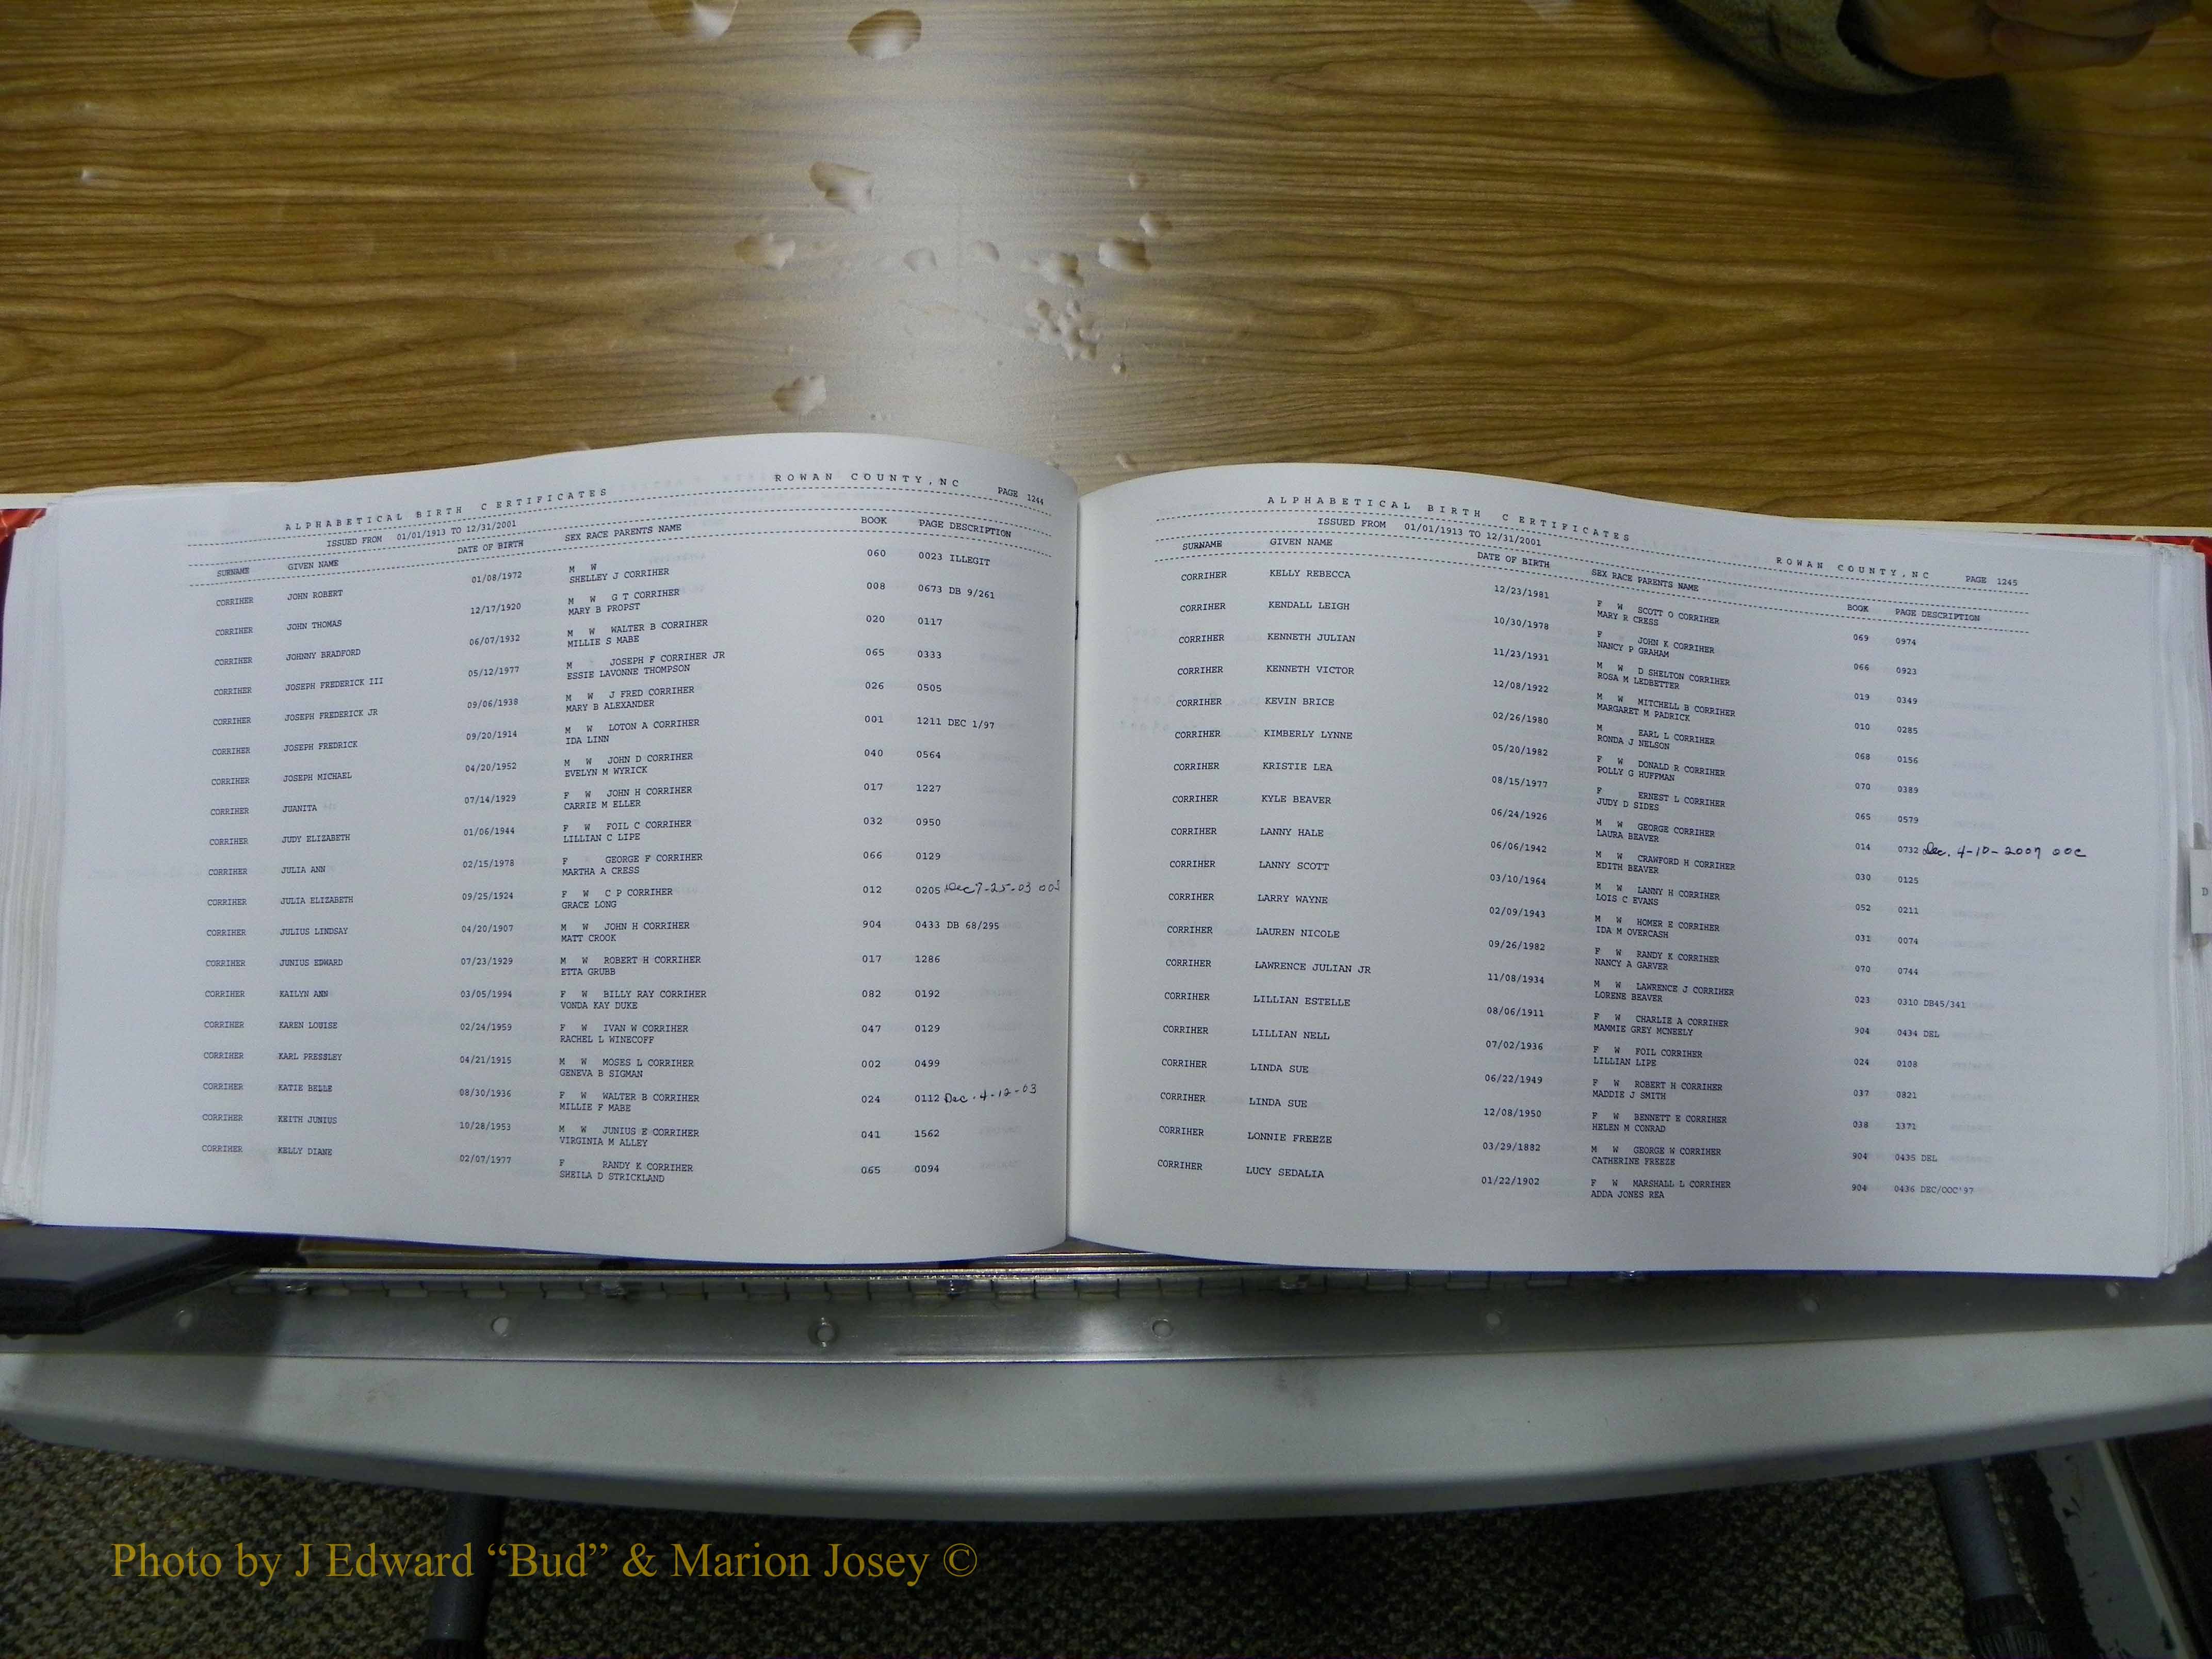 ALPHABETICAL BIRTH CERTIFICATES ROWAN COUNTY,NC PAGE 1244
ISSUED FROM 01/01/1913 TO 12/31/2001
SURNAME GIVEN NAME DATE OF BIRTH SEX RACE PARENTS NAME BOOK PAGE DESCRIPTION
CORRIHER JOHN ROBERT 01/08/1972 M W 060 0023 ILLEGIT
SHELLEY J CORRIHER
CORRIHER JOHN THOMAS 12/17/1920 M W G T CORRIHER 008 0673 DB 9/261
MARY B PROPST
CORRIHER JOHNNY BRADFORD 06/07/1932 M W WALTER B CORRIHER 020 0117
MILLIE S MABE
CORRIHER JOSEPH FREDERICK III 05/12/1977 M JOSEPH F CORRIHER JR 065 0333
ESSIE LAVONNE THOMPSON
CORRIHER JOSEPH FREDERICK JR 09/06/1938 M W J FRED CORRIHER 026 0505
MARY B ALEXANDER
CORRIHER JOSEPH FREDRICK 09/20/1914 M W LOTON A CORRIHER 001 1211 DEC 1/97
IDA LINN
CORRIHER JOSEPH MICHAEL 04/20/1952 M W JOHN D CORRIHER 040 0564
EVELYN M WYRICK
CORRIHER JUANITA 07/14/1929 F W JOHN H CORRIHER 017 1227
CARRIE M ELLER
CORRIHER JUDY ELIZABETH 01/06/1944 F W FOIL C CORRIHER 032 0950
LILLIAN C LIPE
CORRIHER JULIA ANN 02/15/1978 F GEORGE F CORRIHER 066 0129
MARTHA A CRESS
CORRIHER JULIA ELIZABETH 09/25/1924 F W C P CORRIHER 012 0205 Dec 7-25-03
GRACE LONG
CORRIHER JULIUS LINDSAY 04/20/1907 M W JOHN H CORRIHER 904 0433 DB 68/295
MATT CROOK
CORRIHER JUNIUS EDWARD 07/23/1929 M W ROBERT H CORRIHER 017 1286
ETTA GRUBB
CORRIHER KAILYN ANN 03/05/1994 F W BILLY RAY CORRIHER 082 0192
VONDA KAY DUKE
CORRIHER KAREN LOUISE 02/24/1959 F W IVAN W CORRIHER 047 0129
RACHEL L WINECOFF
CORRIHER KARL PRESSLEY 04/21/1915 M W MOSES L CORRIHER 002 0499
GENEVA B SIGMAN
CORRIHER KATIE BELLE 08/30/1936 F W WALTER B CORRIHER 024 0112 Dec. 4-12-03
MILLIE F MABE
CORRIHER KEITH JUNIUS 10/28/1953 M W JUNIUS E CORRIHER 041 1562
VIRGINIA M ALLEY
CORRIHER KELLY DIANE 02/07/1977 F RANDY K CORRIHER 065 0094
SHEILA D STRICKLAND
ALPHABETICAL BIRTH CERTIFICATES ROWAN COUNTY,NC PAGE 1245
ISSUED FROM 01/01/1913 TO 12/31/2001
SURNAME GIVEN NAME DATE OF BIRTH SEX RACE PARENTS NAME BOOK PAGE DESCRIPTION
CORRIHER KELLY REBECCA 12/23/1981 F W SCOTT O CORRIHER 069 0974
MARY R CRESS
CORRIHER KENDALL LEIGH 10/30/1978 F JOHN K CORRIHER 066 0923
NANCY P GRAHAM
CORRIHER KENNETH JULIAN 11/23/1931 M W D SHELTON CORRIHER 019 0349
ROSA M LEDBETTER
CORRIHER KENNETH VICTOR 12/08/1922 M W MITCHELL B CORRIHER 010 0285
MARGARET M PADRICK
CORRIHER KEVIN BRICE 02/26/1980 M EARL L CORRIHER 068 0156
RONDA J NELSON
CORRIHER KIMBERLY LYNNE 05/20/1982 F W DONALD R CORRIHER 070 0389
POLLY G HUFFMAN
CORRIHER KRISTIE LEA 08/15/1977 F ERNEST L CORRIHER 065 0579
JUDY D SIDES
CORRIHER KYLE BEAVER 06/24/1926 M W GEORGE CORRIHER 014 0732 Dec. 4-10-2007 OOC
LAURA BEAVER
CORRIHER LANNY HALE 06/06/1942 M W CRAWFORD H CORRIHER 030 0125
EDITH BEAVER
CORRIHER LANNY SCOTT 03/10/1964 M W LANNY H CORRIHER 052 0211
LOIS C EVANS
CORRIHER LARRY WAYNE 02/09/1943 M W HOMER E CORRIHER 031 0074
IDA M OVERCASH
CORRIHER LAUREN NICOLE 09/26/1982 F W RANDY K CORRIHER 070 0744
NANCY A GARVER
CORRIHER LAWRENCE JULIAN JR 11/08/1934 M W LAWRENCE J CORRIHER 023 0310 DB45/341
LORENE BEAVER
CORRIHER LILLIAN ESTELLE 08/06/1911 F W CHARLIE A CORRIHER 904 0434 DEL
MAMMIE GREY MCNEELY
CORRIHER LILLIAN NELL 07/02/1936 F W FOIL CORRIHER 024 0108
LILLIAN LIPE
CORRIHER LINDA SUE 06/22/1949 F W ROBERT H CORRIHER 037 0821
MADDIE J SMITH
CORRIHER LINDA SUE 12/08/1950 F W BENNETT E CORRIHER 038 1371
HELEN M CONRAD
CORRIHER LONNIE FREEZE 03/29/1882 M W GEORGE W CORRIHER 904 0435 DEL
CATHERINE FREEZE
CORRIHER LUCY SEDALIA 01/22/1902 F W MARSHALL L CORRIHER 904 0436 DEC/OOC'97
ADDA JONES REA
D
Photo by J Edward “Bud” & Marion Josey ©